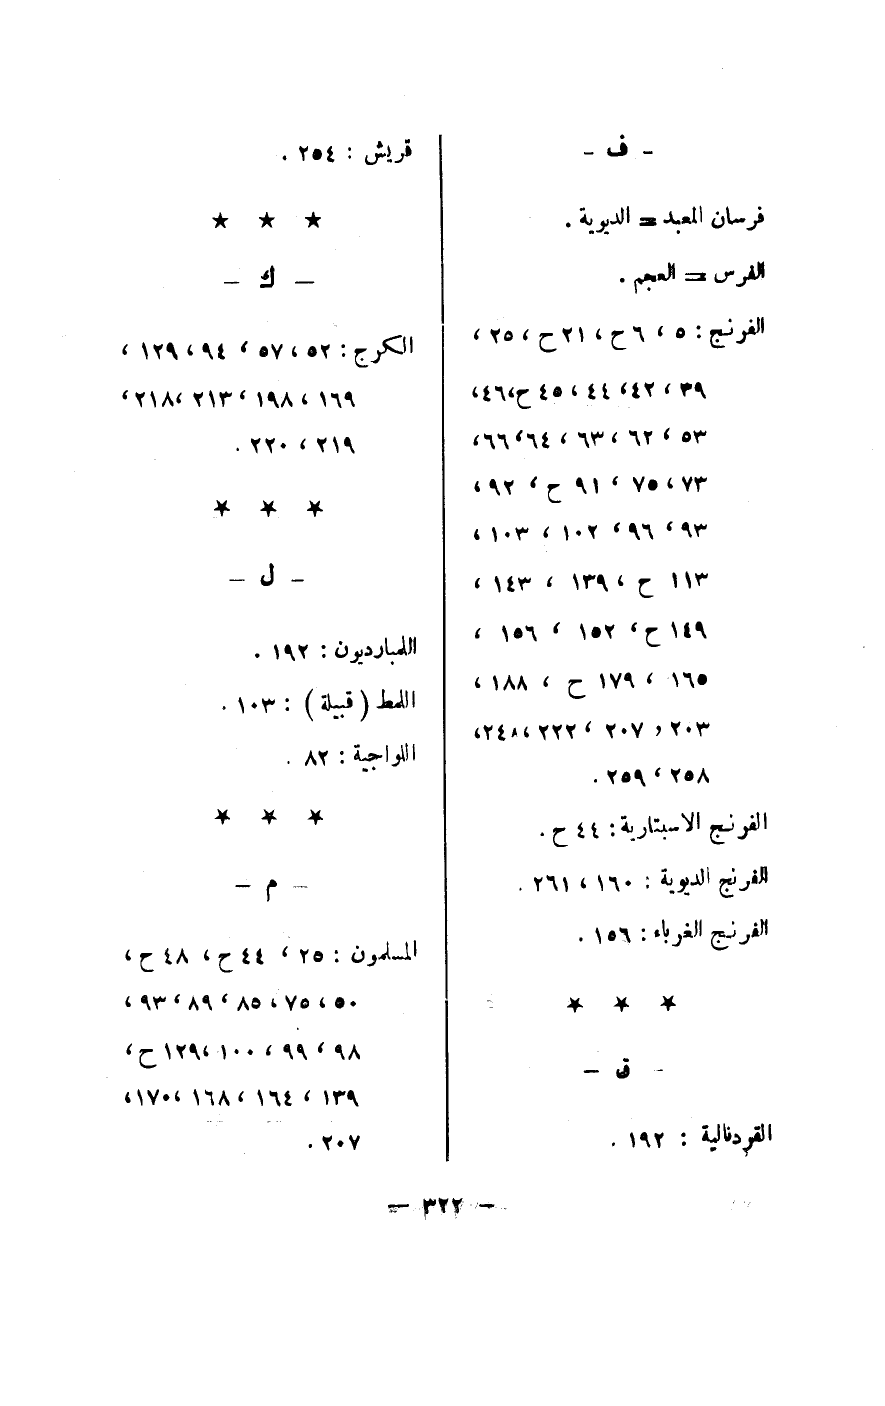 - ف -
فرسان المعبد = الديوية .
الفرس = العجم .
الفرنج : ٥ ، ٦ ح ، ٢١ ح ، ٢٥ ،
٣٩ ، ٤٢ ، ٤٤ ، ٤٥ ح ، ٤٦ ،
٥٣ ، ٦٢ ، ٦٣ ، ٦٤ ، ٦٦ ،
٧٣ ، ٧٥ ، ٩١ ح ، ٩٢ ،
٩٣ ، ٩٦ ، ١٠٢ ، ١٠٣ ،
١١٣ ح ، ١٣٩ ، ١٤٣ ،
١٤٩ ح ، ١٥٢ ، ١٥٦ ،
١٦٥ ، ١٧٩ ح ، ١٨٨ ،
٢٠٣ ، ٢٠٧ ، ٢٢٢ ، ٢٤٨ ،
٢٥٨ ، ٢٥٩ .
الفرنج الاسبتارية : ٤٤ ح .
الفرنج الديوية : ١٦٠ ، ٢٦١ .
الفرنج الغرباء : ١٥٦ .
★ ★ ★
- ق -
القردنالية : ١٩٢ .
قريش : ٢٥٤ .
★ ★ ★
- ك -
الكرج : ٥٢ ، ٥٧ ، ٩٤ ، ١٢٩ ،
١٦٩ ، ١٩٨ ، ٢١٣ ، ٢١٨ ،
٢١٩ ، ٢٢٠ .
★ ★ ★
- ل -
اللمبارديون : ١٩٢ .
اللمط ( قبيلة ) : ١٠٣ .
اللواجية : ٨٢ .
★ ★ ★
- م -
المسلمون : ٢٥ ، ٤٤ ح ، ٤٨ ح ،
٥٠ ، ٧٥ ، ٨٥ ، ٨٩ ، ٩٣ ،
٩٨ ، ٩٩ ، ١٠٠ ، ١٢٩ ح ،
١٣٩ ، ١٦٤ ، ١٦٨ ، ١٧٠ ،
٢٠٧ .
- ٣٢٢ -